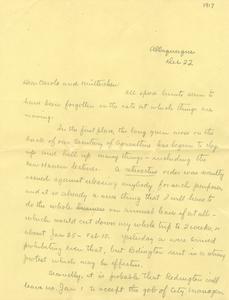 1917
Albuquerque
Dec 22
Dear Carola and Mutterchen
All speed limits seem to
have been forgotten in the rate at which things are
moving:
In the first place, the long green man on the
back of our Secretary of Agriculture has begun to
up and ball up many things - including the
New Haven lecture. A order was
issued against releasing anybody for such purposes
and it is already a sure thing that I will have to
do the whole business on annual leave if at all -
which would cut down my whole trip to 2 weeks, or
about Jan 25 - Feb 10. Yesterday a wire arrived
prohibiting even that, but Redington sent in a strong
protest which may be effective.
Secondly, it is probable that Redington will
leave us Jan. 1 to accept the job of City Manager